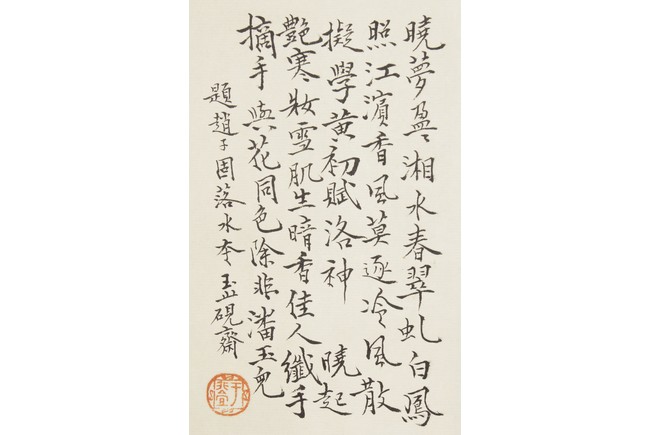 曉夢盈〻湘水春翠虬白鳳
照江濱香風莫逐冷風散
擬學黃初賦洛神　曉起
艷寒妝雪肌生暗香佳人纖手
摘手與花同色除非潘玉兒
題趙子固落水李玉硯齋